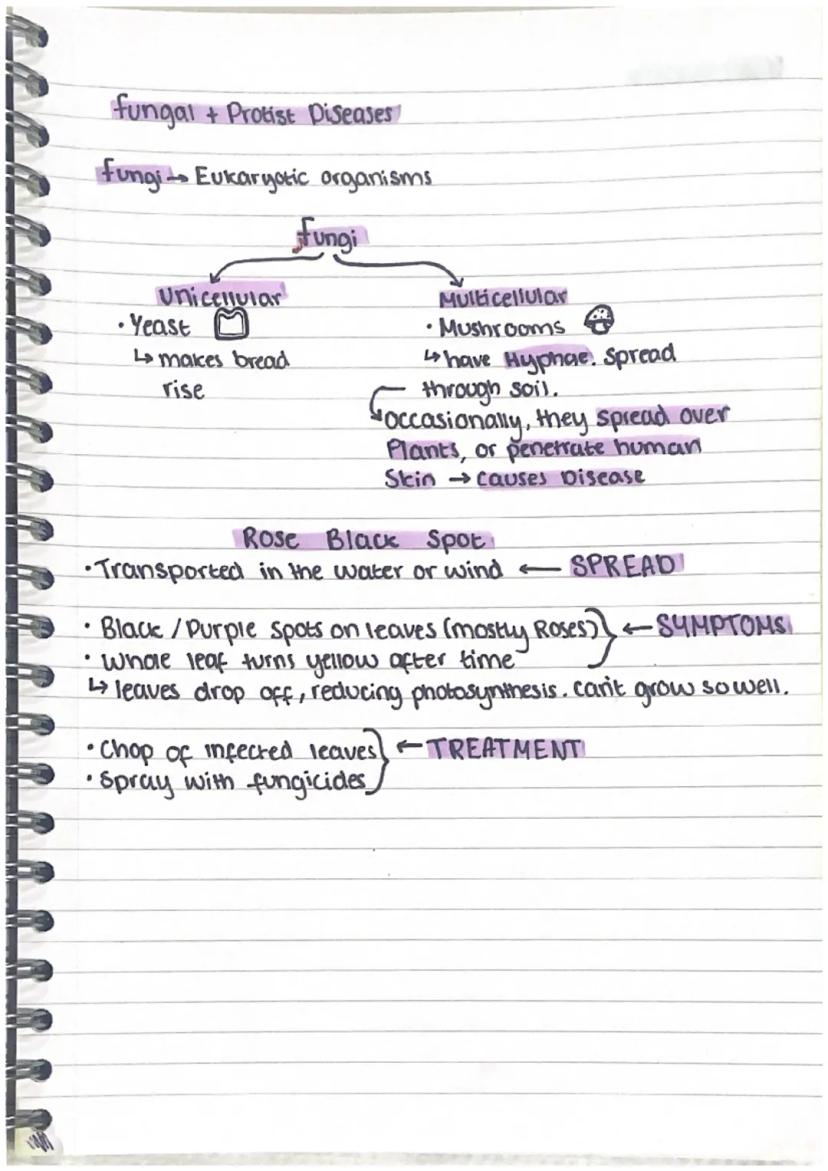 Fungal + Protist Diseases
Fungi → Eukaryotic organisms
Fungi
Unicellular
• Yeast
↳ makes bread
rise
Multicellular
• Mushrooms
↳ have Hyphae. Spread
through soil.
occasionally, they spread over
Plants, or penetrate human
Skin → causes Disease
Rose Black Spot
• Transported in the water or wind ← SPREAD
• Black / Purple spots on leaves (mostly Roses) ← SYMPTOMS
• whole leaf turns yellow after time
↳ leaves drop off, reducing photosynthesis. can't grow so well.
• Chop of infected leaves ← TREATMENT
• Spray with fungicides